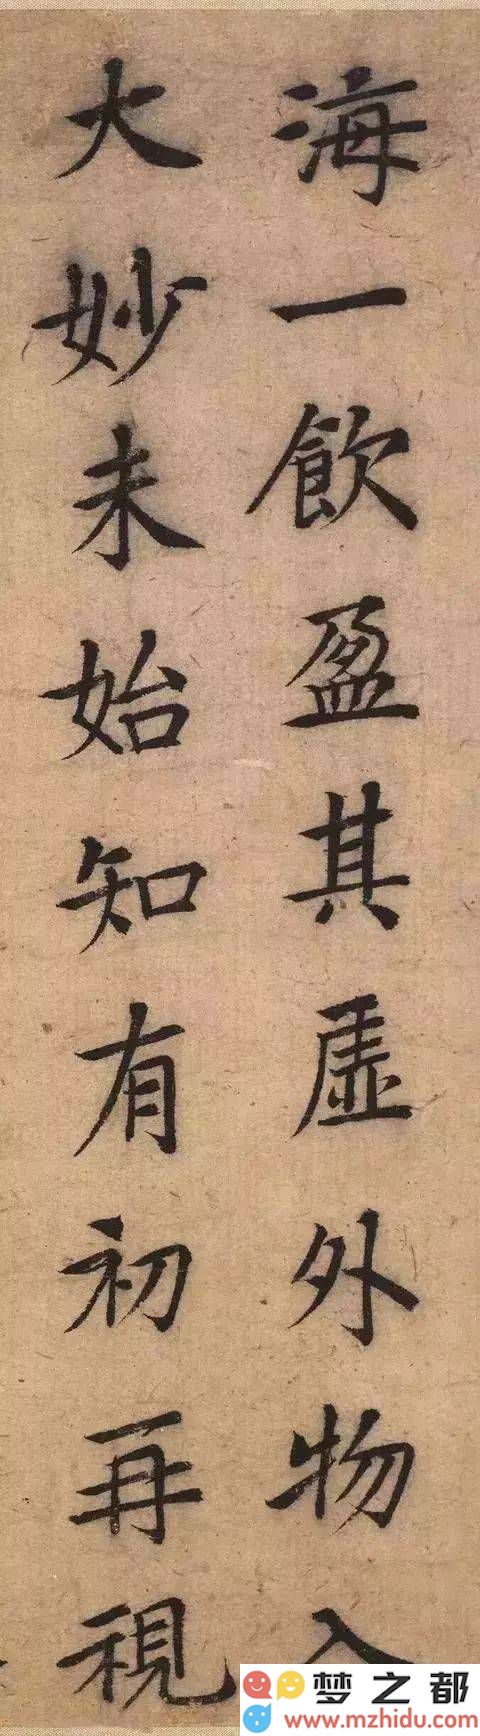 海一飲盈其虛外物入
大妙未始知有初再視
梦之都
www.mzhidu.com